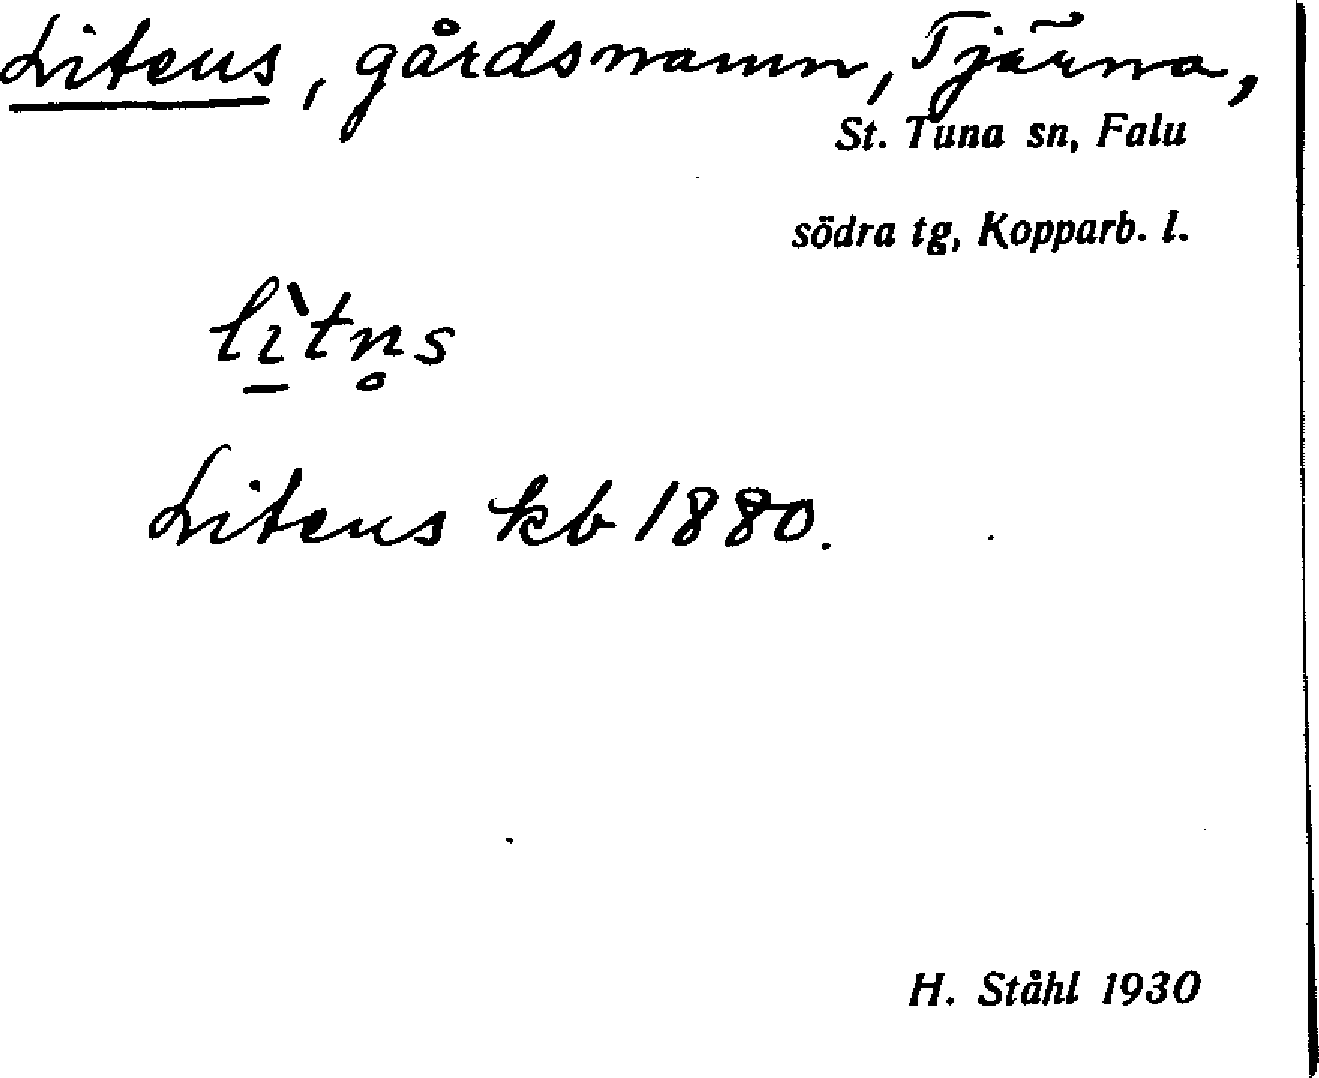 Litens, gårdsnamn, Tjärna,
St. Tuna sn, Falu
södra tg, Kopparb. l.
lı̱̀tn̥s
Litens kb 1880.
H. Ståhl 1930